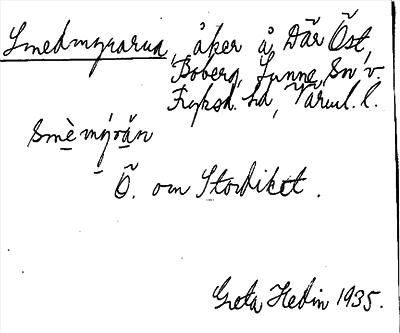 Smedmyrarna, åker å Där Öst,
Boberg, Sunne sn v.
Fryksd. hd, Värml. l.
Smè mýrän
Ö. om Stordiket.
Greta Hedin 1935.